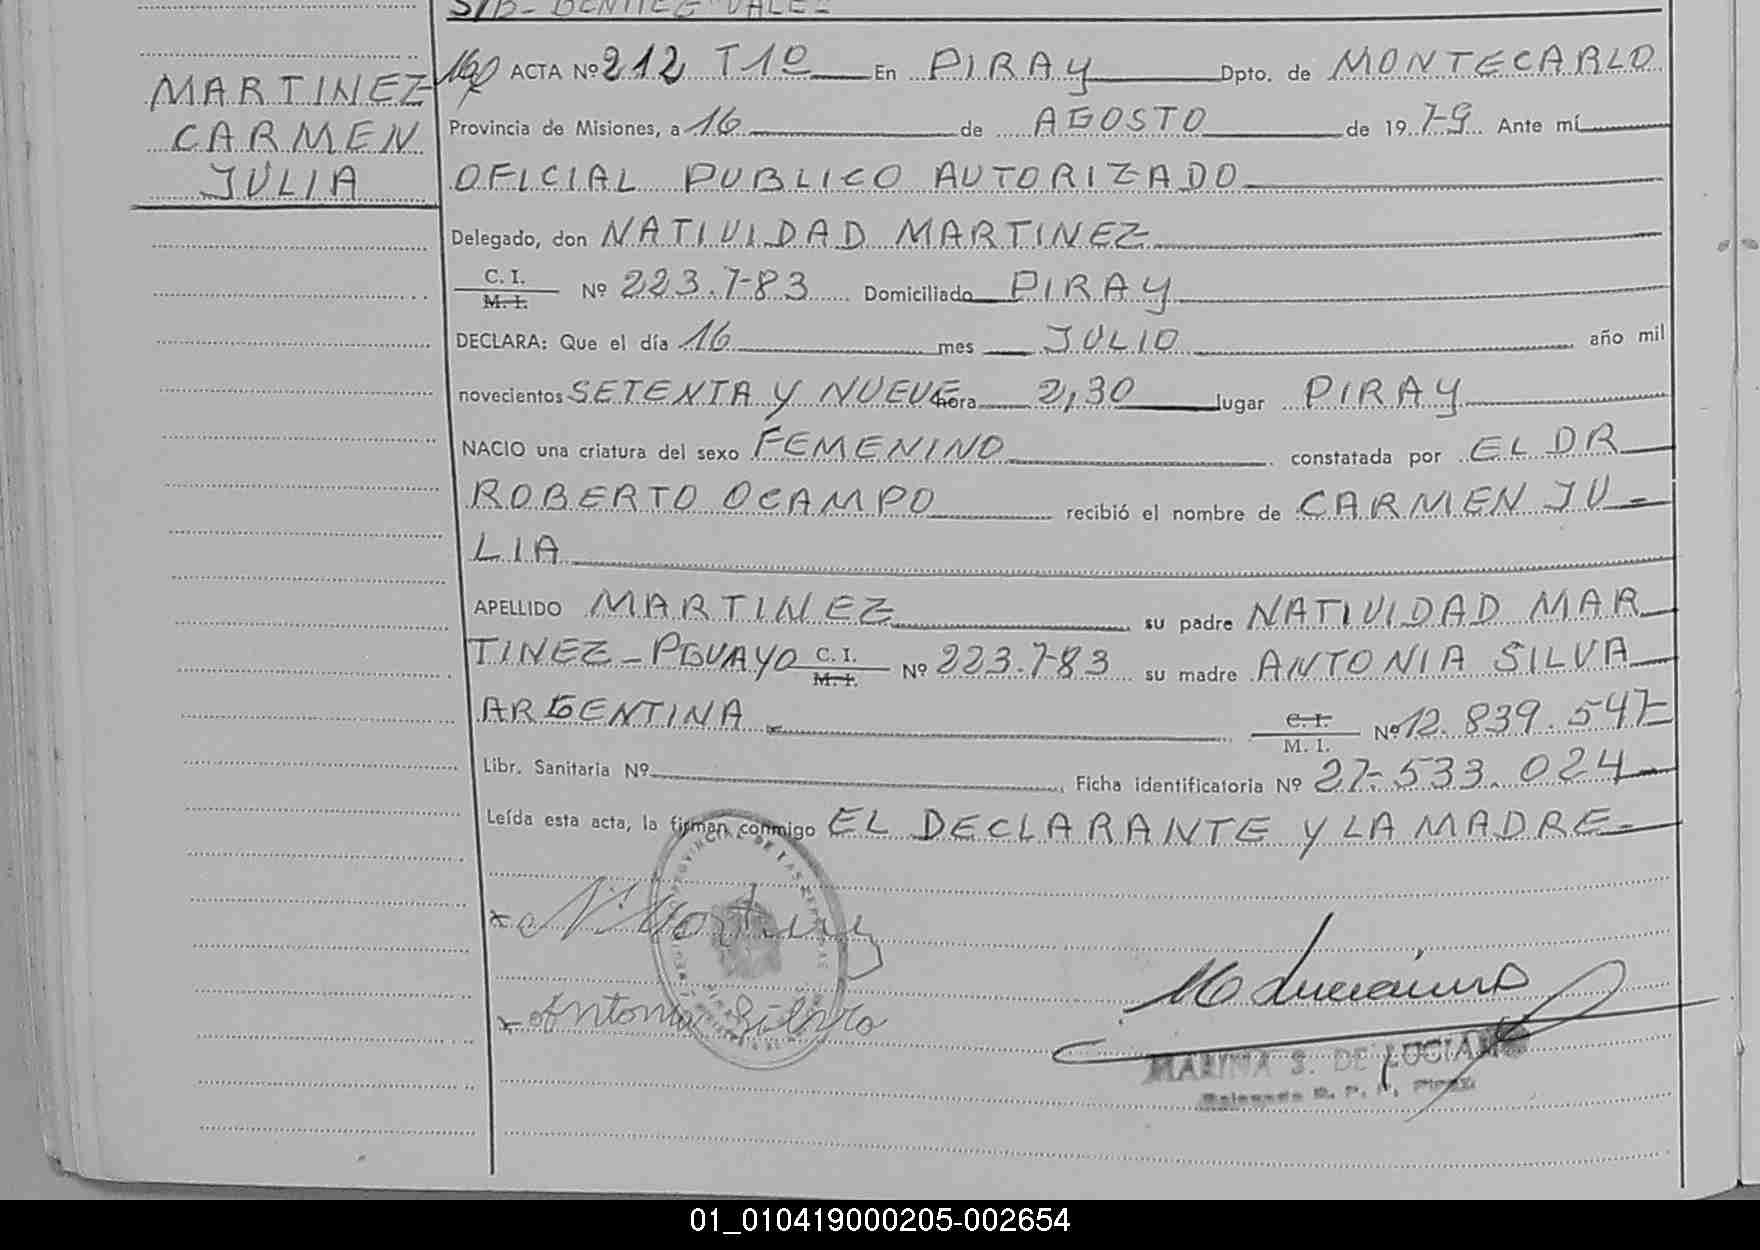 S/B- BENITEZ VALE-
MARTINEZ
CARMEN
JULIA
ACTA Nº 212 T1º En PIRAY Dpto. de MONTECARLO
Provincia de Misiones, a 16 de AGOSTO de 1979 Ante mí
OFICIAL PUBLICO AUTORIZADO
Delegado, don NATIVIDAD MARTINEZ
C. I. M. I. Nº 223.783 Domiciliado PIRAY
DECLARA: Que el día 16 mes JULIO año mil
novecientos SETENTA Y NUEVE hora 2,30 lugar PIRAY
NACIO una criatura del sexo FEMENINO constatada por EL DR
ROBERTO OCAMPO recibió el nombre de CARMEN JU-
LIA
APELLIDO MARTINEZ su padre NATIVIDAD MAR
TINEZ - PGUAYO C. I. M. I. Nº 223.783 su madre ANTONIA SILVA
ARGENTINA C. I. M. I. Nº 12.839.547
Libr. Sanitaria Nº Ficha identificatoria Nº 27.533.024
Leída esta acta, la firman conmigo EL DECLARANTE Y LA MADRE-
Antonia Silva
MARINA S. DE LUCIANO
01_010419000205-002654